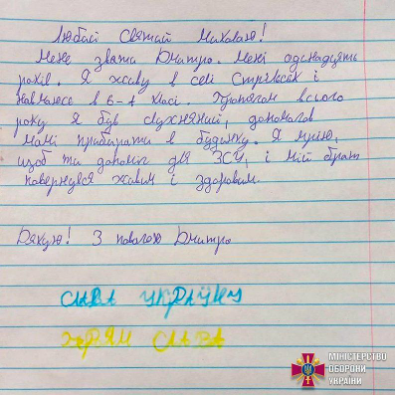 Любий Святий Миколаю!
Мене звати Дмитро. Мені одинадцять
років. Я живу в селі і
навчаюсь в 6-А класі. Протягом всього
року я був слухняний, допомагав
мамі прибирати в будинку. Я мрію,
щоб ти допоміг для ЗСУ, і мій брат
повернувся живим і здоровим.
Дякую! З повагою Дмитро
СЛАВА УКРАЇНІ
СЛАВА
МІНІСТЕРСТВО
ОБОРОНИ
УКРАЇНИ